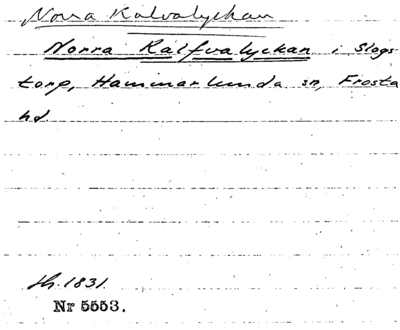 Norra Kalvalyckan
Norra Kalfvalyckan i Slogs-
torp, Hammarlunda sn, Frosta
hd.
sh. 1831.
Nr 5553.